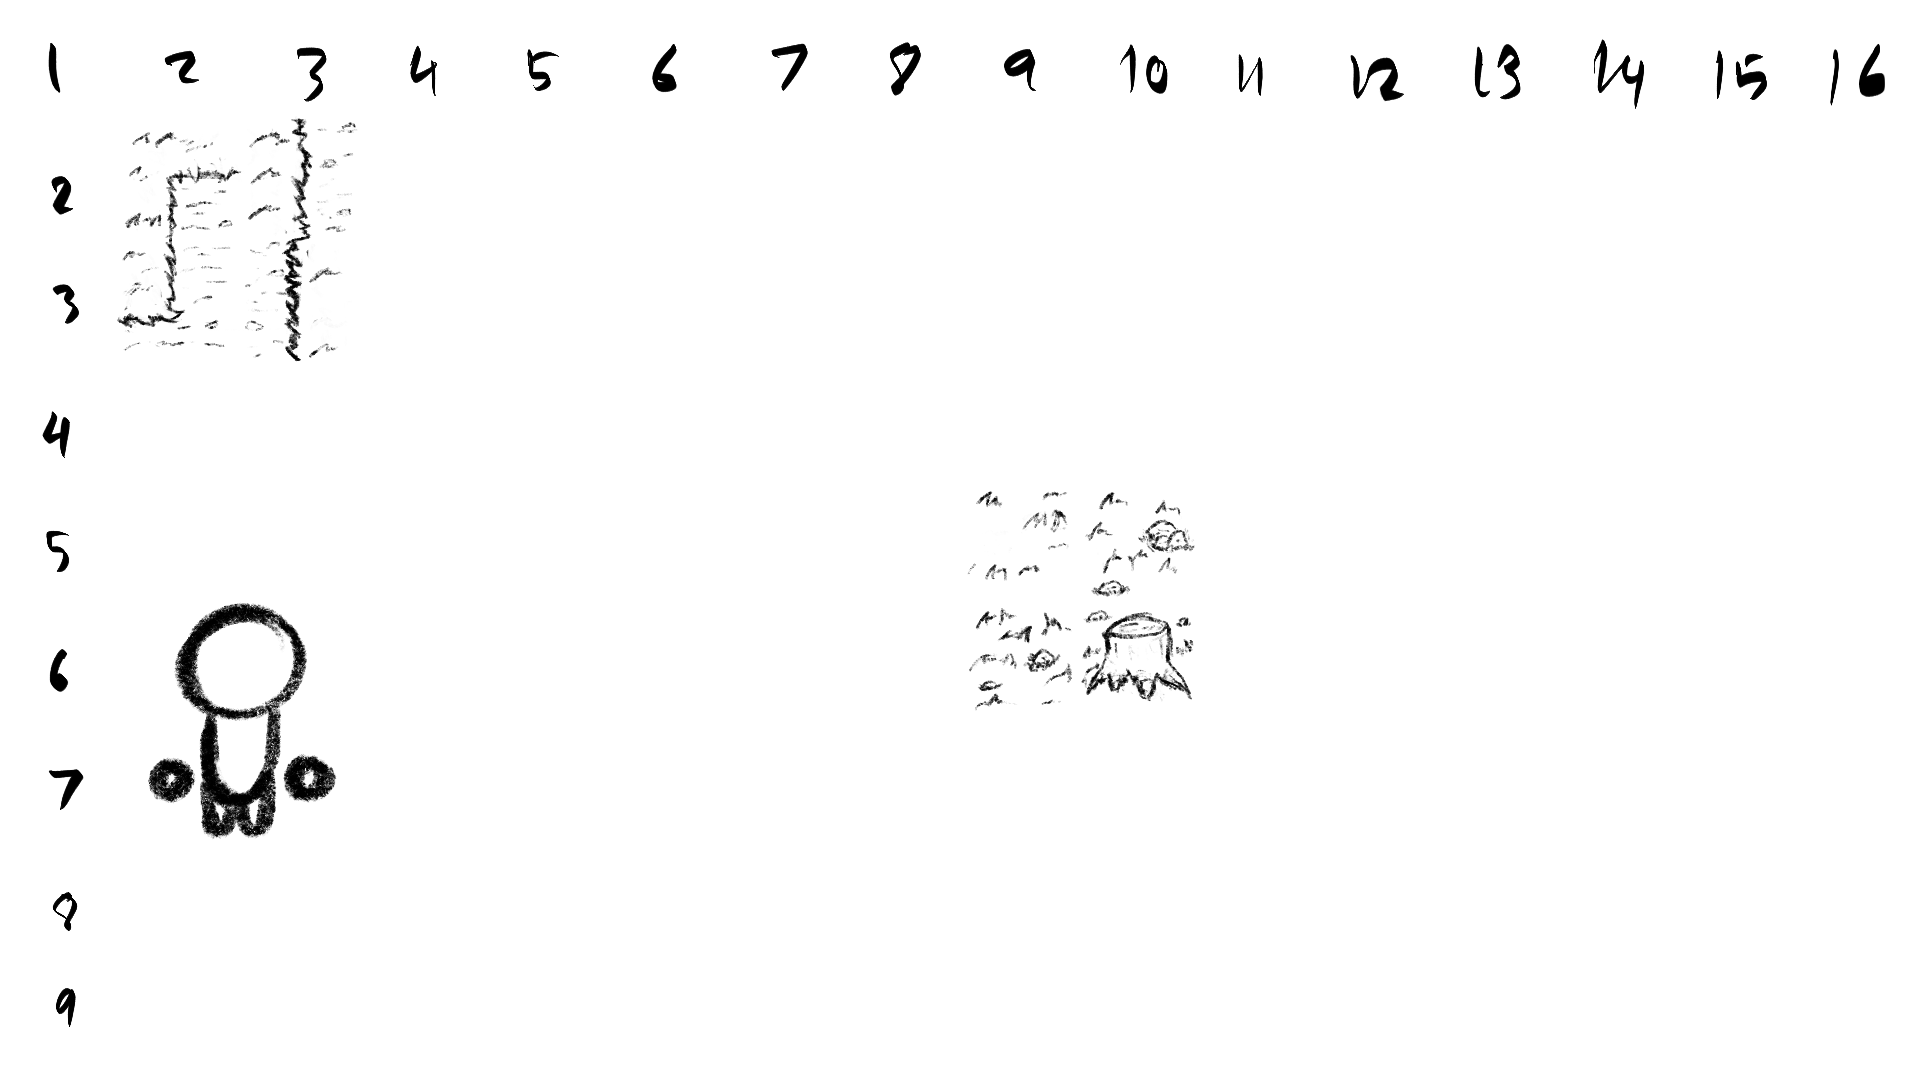 1 2 3 4 5 6 7 8 9 10 11 12 13 14 15 16
2
3
4
5
6
7
8
9